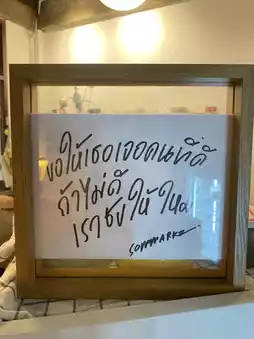 ขอให้เธอเจอคนที่ดี
ถ้าไม่ดี
เราชังให้ ใหม่
sommarke